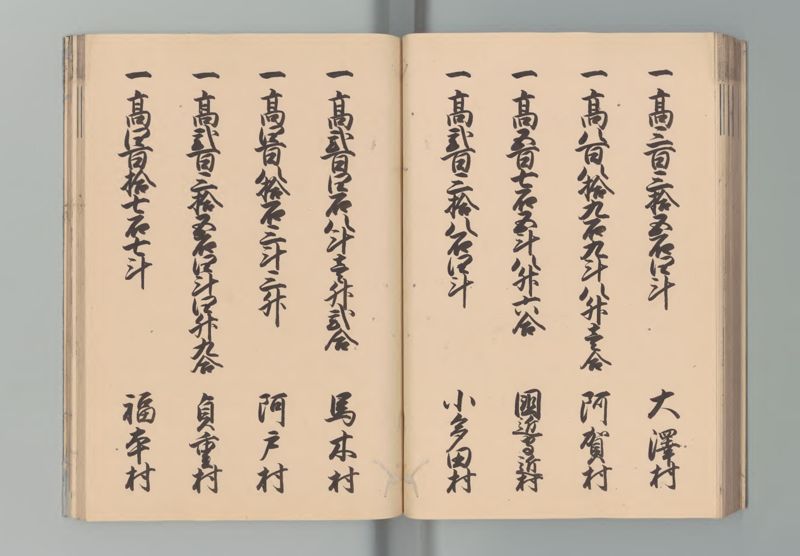 一 高三百三拾五石四斗 大澤村
一 高八百八拾九石九斗八升壱合 阿賀村
一 高五百七石五斗八升六合 國近村
一 高弐百三拾八石四斗 小多田村
一 高弐百四石八斗壱升弐合 馬木村
一 高四百八拾石三斗三升 阿戸村
一 高弐百三拾五石四斗四升九合 貞重村
一 高四百拾七石七斗 福本村